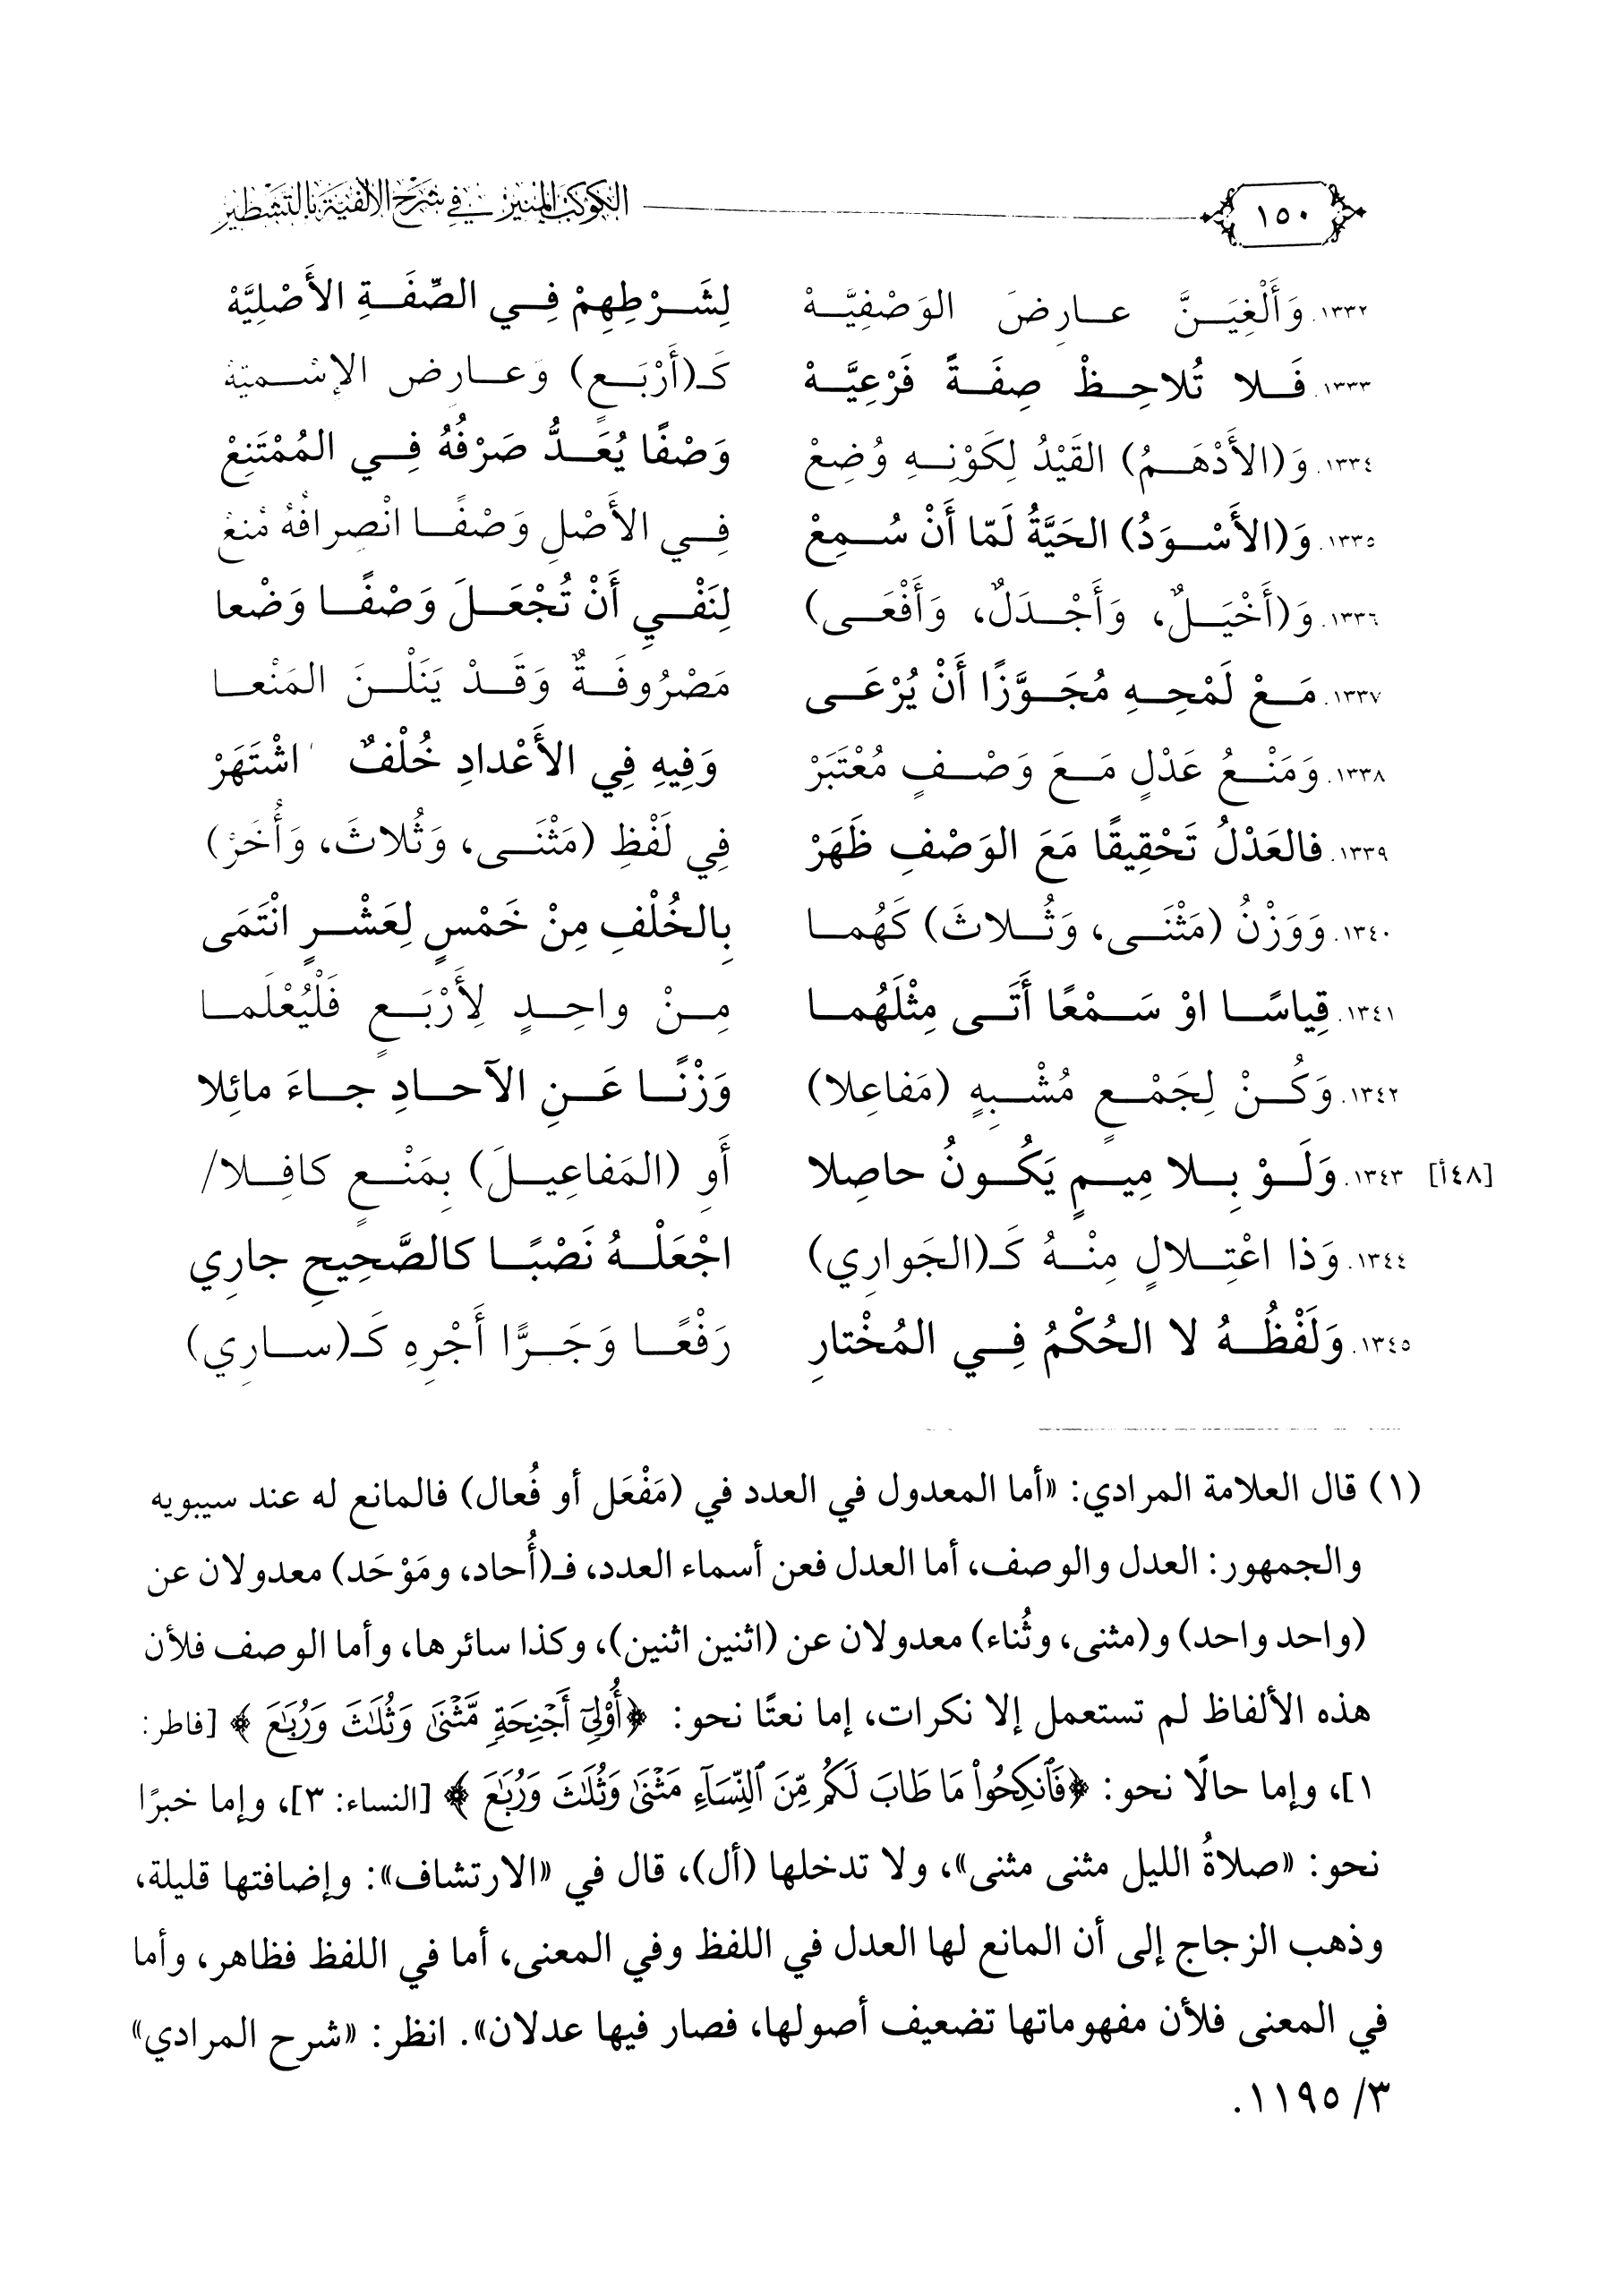 ١٥٠ الكوكب المنير في شرح الألفية بالتشطير
١٣٣٢. وَأَلْغِيَنَّ عارِضَ الوَصْفِيَّهْ لِشَرْطِهِمْ فِي الصِّفَةِ الأَصْلِيَّهْ
١٣٣٣. فَلا تُلاحِظْ صِفَةً فَرْعِيَّهْ كَـ(أَرْبَعٍ) وَعارِضَ الإِسْمِيَّهْ
١٣٣٤. وَ(الأَدْهَمُ) القَيْدُ لِكَوْنِهِ وُضِعْ وَصْفًا يُعَدُّ صَرْفُهُ فِي المُمْتَنِعْ
١٣٣٥. وَ(الأَسْوَدُ) الحَيَّةُ لَمّا أَنْ سُمِعْ فِي الأَصْلِ وَصْفًا انْصِرافُهُ مُنِعْ
١٣٣٦. وَ(أَخْيَلٌ، وَأَجْدَلٌ، وَأَفْعَى) لِنَفْيِ أَنْ تُجْعَلَ وَصْفًا وَضْعا
١٣٣٧. مَعْ لَمْحِهِ مُجَوَّزًا أَنْ يُرْعَى مَصْرُوفَةٌ وَقَدْ يَنَلْنَ المَنْعا
١٣٣٨. وَمَنْعُ عَدْلٍ مَعَ وَصْفٍ مُعْتَبَرْ وَفِيهِ فِي الأَعْدادِ خُلْفٌ اشْتَهَرْ
١٣٣٩. فالعَدْلُ تَحْقِيقًا مَعَ الوَصْفِ ظَهَرْ فِي لَفْظِ (مَثْنَى، وَثُلاثَ، وَأُخَرْ)
١٣٤٠. وَوَزْنُ (مَثْنَى، وَثُلاثَ) كَهُما بِالخُلْفِ مِنْ خَمْسٍ لِعَشْرٍ انْتَمَى
١٣٤١. قِياسًا اوْ سَمْعًا أَتَى مِثْلَهُما مِنْ واحِدٍ لِأَرْبَعٍ فَلْيُعْلَما
١٣٤٢. وَكُنْ لِجَمْعٍ مُشْبِهٍ (مَفاعِلا) وَزْنًا عَنِ الآحادِ جاءَ مائِلا
[٤٨أ] ١٣٤٣. وَلَوْ بِلا مِيمٍ يَكُونُ حاصِلا أَوِ (المَفاعِيلَ) بِمَنْعٍ كافِلا/
١٣٤٤. وَذا اعْتِلالٍ مِنْهُ كَـ(الجَوارِي) اجْعَلْهُ نَصْبًا كالصَّحِيحِ جارِي
١٣٤٥. وَلَفْظُهُ لا الحُكْمُ فِي المُخْتارِ رَفْعًا وَجَرًّا أَجْرِهِ كَـ(سارِي)
(١) قال العلامة المرادي: «أما المعدول في العدد في (مَفْعَل أو فُعال) فالمانع له عند سيبويه
والجمهور: العدل والوصف، أما العدل فعن أسماء العدد، فـ(أُحاد، ومَوْحَد) معدولان عن
(واحد واحد) و(مثنى، وثُناء) معدولان عن (اثنين اثنين)، وكذا سائرها، وأما الوصف فلأن
هذه الألفاظ لم تستعمل إلا نكرات، إما نعتًا نحو: ﴿أُوْلِيٓ أَجۡنِحَةٖ مَّثۡنَىٰ وَثُلَٰثَ وَرُبَٰعَ ﴾ [فاطر:
١]، وإما حالًا نحو: ﴿فَٱنكِحُواْ مَا طَابَ لَكُم مِّنَ ٱلنِّسَآءِ مَثۡنَىٰ وَثُلَٰثَ وَرُبَٰعَ ﴾ [النساء: ٣]، وإما خبرًا
نحو: «صلاةُ الليل مثنى مثنى»، ولا تدخلها (أل)، قال في «الارتشاف»: وإضافتها قليلة،
وذهب الزجاج إلى أن المانع لها العدل في اللفظ وفي المعنى، أما في اللفظ فظاهر، وأما
في المعنى فلأن مفهوماتها تضعيف أصولها، فصار فيها عدلان». انظر: «شرح المرادي»
٣/ ١١٩٥.